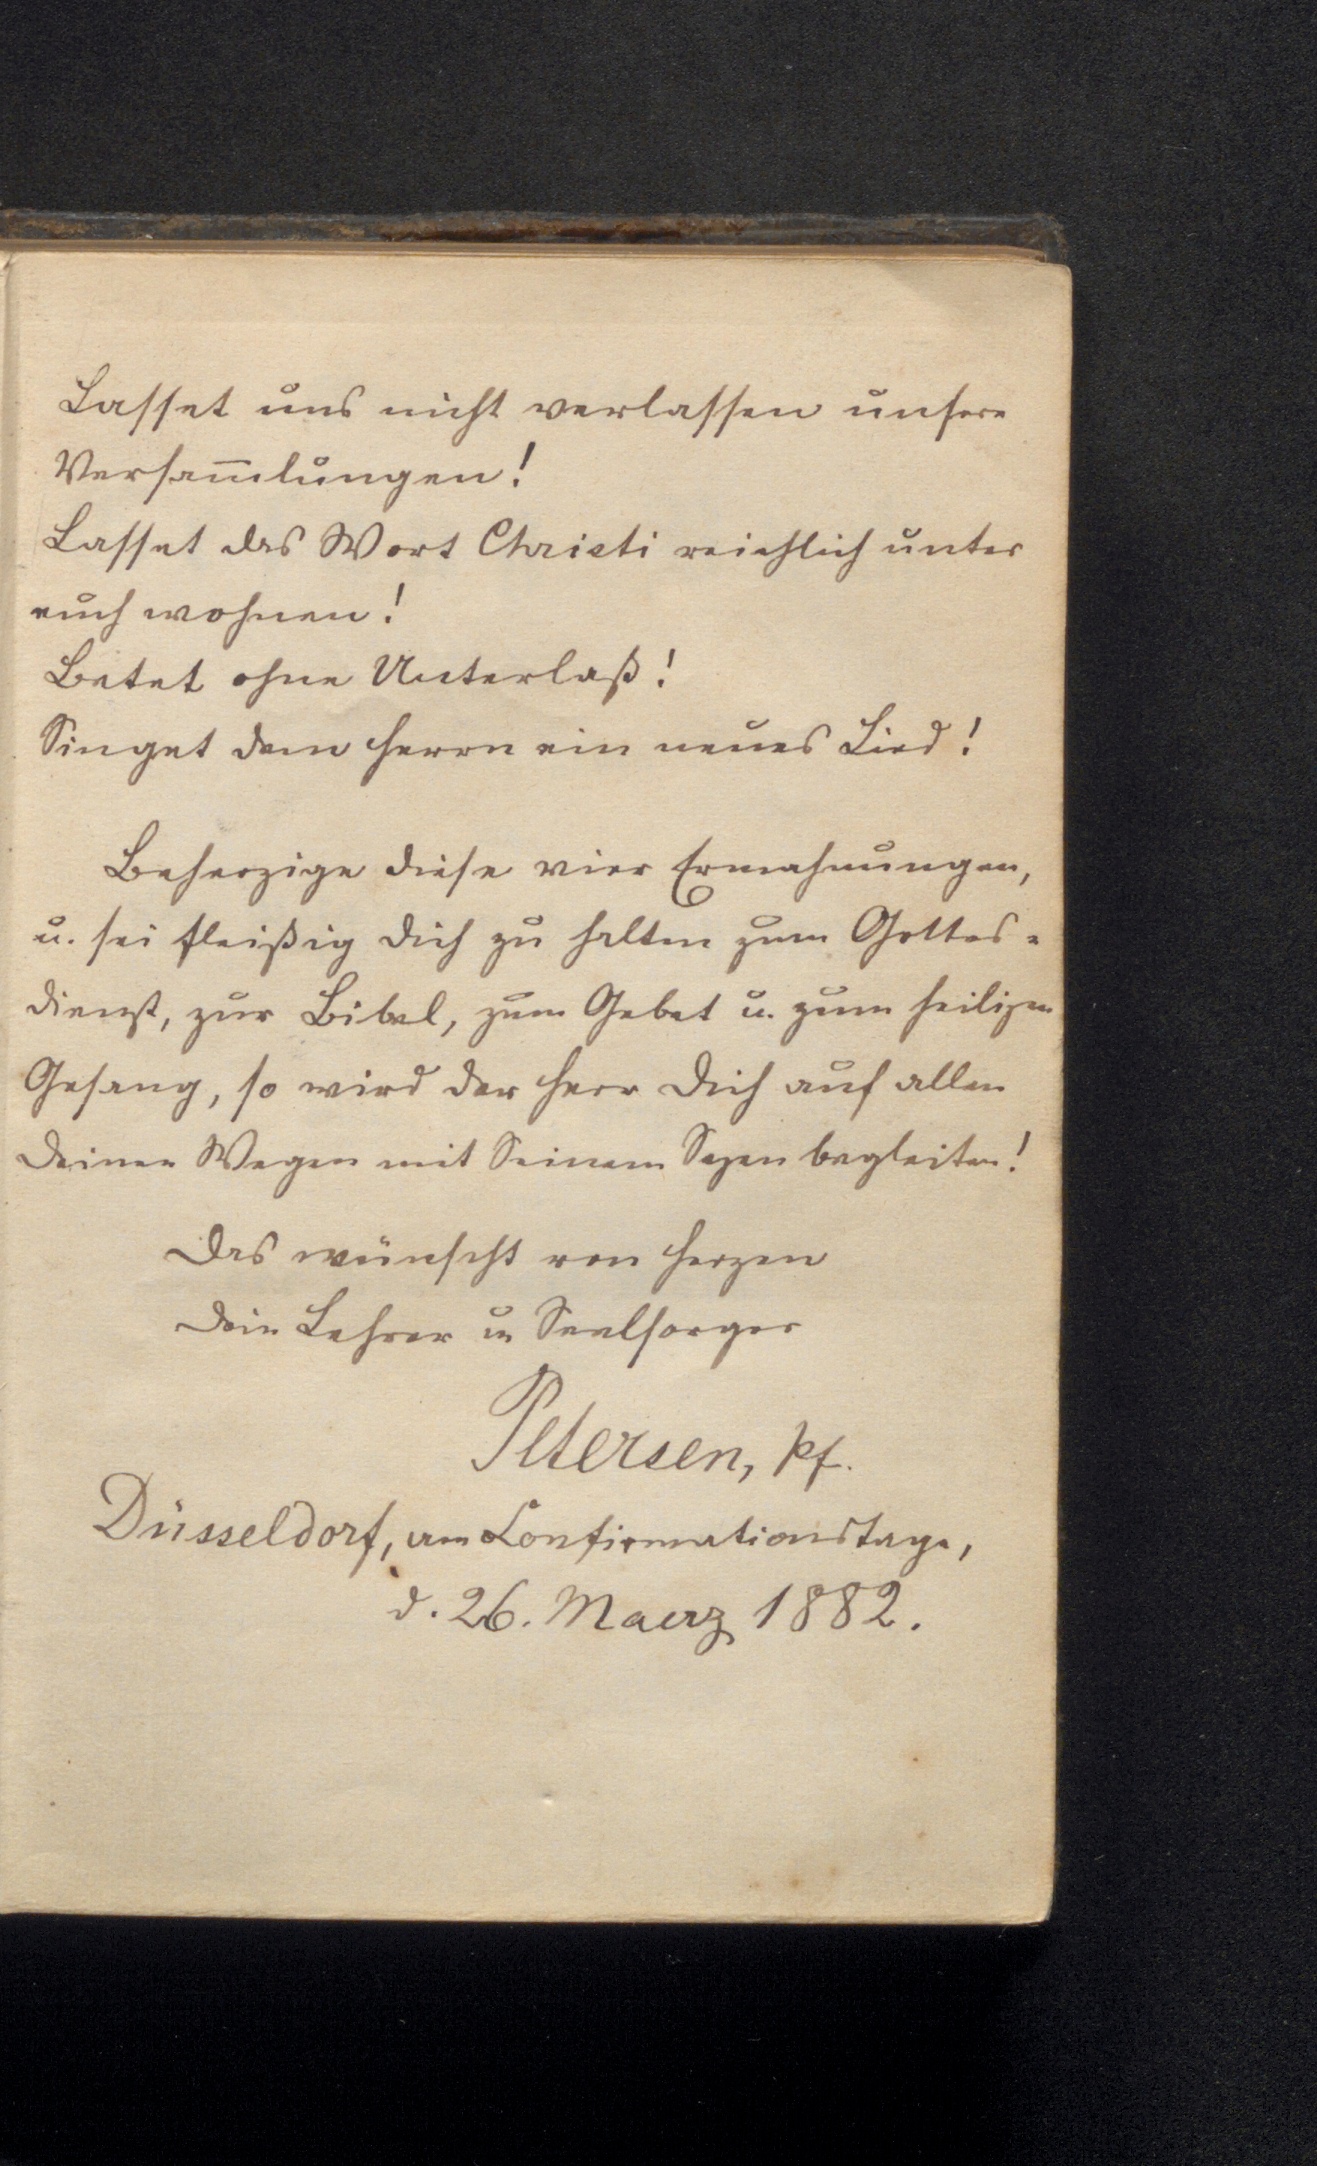 Lasset uns nicht verlassen unsere
Versam̅lungen!
Lasset das Wort Christi reichlich unter
euch wohnen!
Betet ohne Unterlaß!
Singet dem Herrn ein neues Lied!
Beherzige diese vier Ermahnungen,
u. sei fleißig Dich zu halten zum Gottes=
dienst, zur Bibel, zum Gebet u. zum heiligen
Gesang, so wird der Herr Dich auf allen
Deinen Wegen mit Seinem Segen begleiten!
Das wünscht von Herzen
Dein Lehrer u Seelsorger
Petersen, Pf.
Düsseldorf, am Confirmationstage,
d. 26. Maerz 1882.